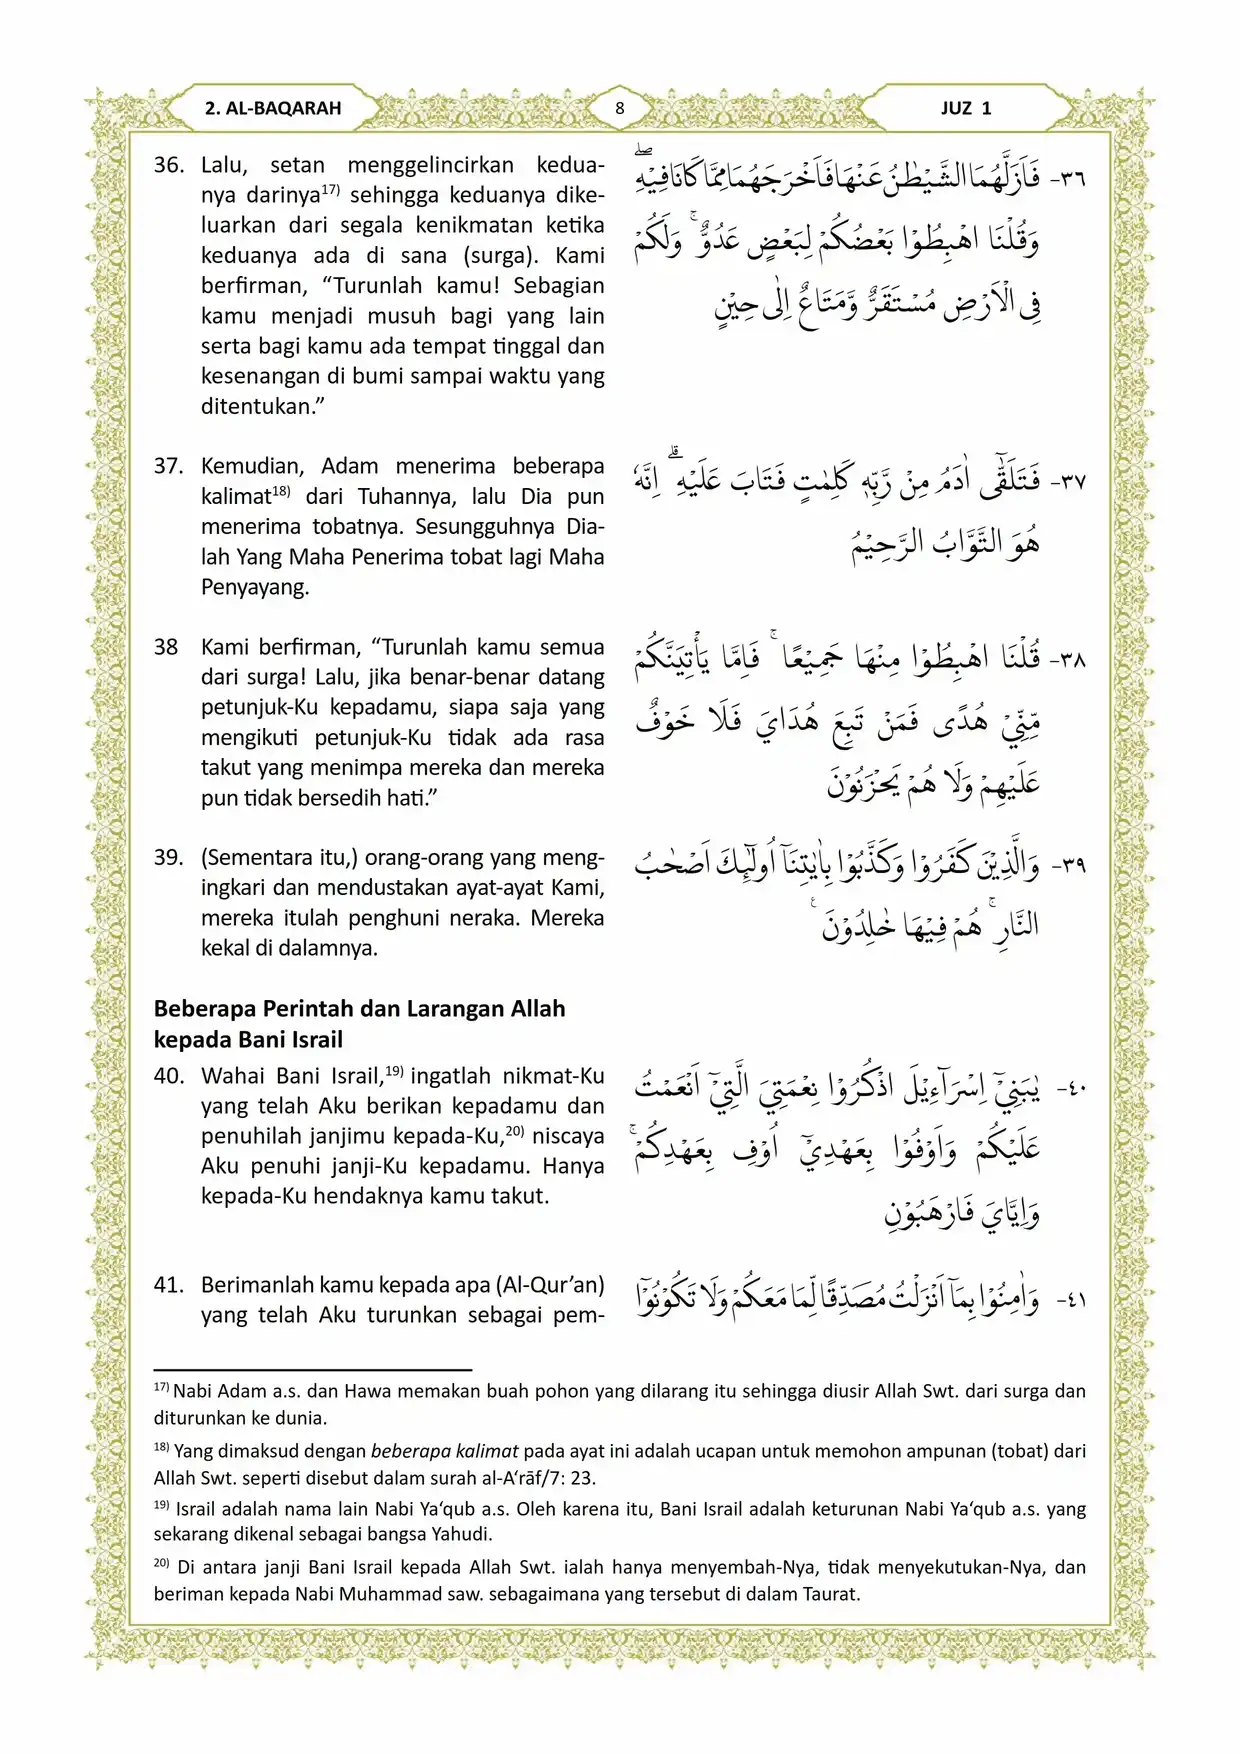 2. AL-BAQARAH
8
JUZ 1
36. Lalu, setan menggelincirkan kedua-
nya darinya17) sehingga keduanya dike-
luarkan dari segala kenikmatan ketika
keduanya ada di sana (surga). Kami
berfirman, “Turunlah kamu! Sebagian
kamu menjadi musuh bagi yang lain
serta bagi kamu ada tempat tinggal dan
kesenangan di bumi sampai waktu yang
ditentukan.”
٣٦- فَاَزَلَّهُمَا الشَّيْطٰنُ عَنْهَا فَاَخْرَجَهُمَا مِمَّا كَانَا فِيْهِ ۖ
وَقُلْنَا اهْبِطُوْا بَعْضُكُمْ لِبَعْضٍ عَدُوٌّ ۚ وَلَكُمْ
فِى الْاَرْضِ مُسْتَقَرٌّ وَّمَتَاعٌ اِلٰى حِيْنٍ
37. Kemudian, Adam menerima beberapa
kalimat18) dari Tuhannya, lalu Dia pun
menerima tobatnya. Sesungguhnya Dia-
lah Yang Maha Penerima tobat lagi Maha
Penyayang.
٣٧- فَتَلَقّٰٓى اٰدَمُ مِنْ رَّبِّهٖ كَلِمٰتٍ فَتَابَ عَلَيْهِ ۗ اِنَّهٗ
هُوَ التَّوَّابُ الرَّحِيْمُ
38 Kami berfirman, “Turunlah kamu semua
dari surga! Lalu, jika benar-benar datang
petunjuk-Ku kepadamu, siapa saja yang
mengikuti petunjuk-Ku tidak ada rasa
takut yang menimpa mereka dan mereka
pun tidak bersedih hati.”
٣٨- قُلْنَا اهْبِطُوْا مِنْهَا جَمِيْعًا ۚ فَاِمَّا يَأْتِيَنَّكُمْ
مِّنِّيْ هُدًى فَمَنْ تَبِعَ هُدَايَ فَلَا خَوْفٌ
عَلَيْهِمْ وَلَا هُمْ يَحْزَنُوْنَ
39. (Sementara itu,) orang-orang yang meng-
ingkari dan mendustakan ayat-ayat Kami,
mereka itulah penghuni neraka. Mereka
kekal di dalamnya.
٣٩- وَالَّذِيْنَ كَفَرُوْا وَكَذَّبُوْا بِاٰيٰتِنَآ اُولٰۤىِٕكَ اَصْحٰبُ
النَّارِ ۚ هُمْ فِيْهَا خٰلِدُوْنَ ࣖ
Beberapa Perintah dan Larangan Allah
kepada Bani Israil
40. Wahai Bani Israil,19) ingatlah nikmat-Ku
yang telah Aku berikan kepadamu dan
penuhilah janjimu kepada-Ku,20) niscaya
Aku penuhi janji-Ku kepadamu. Hanya
kepada-Ku hendaknya kamu takut.
٤٠- يٰبَنِيْٓ اِسْرَاۤءِيْلَ اذْكُرُوْا نِعْمَتِيَ الَّتِيْٓ اَنْعَمْتُ
عَلَيْكُمْ وَاَوْفُوْا بِعَهْدِيْٓ اُوْفِ بِعَهْدِكُمْۚ
وَاِيَّايَ فَارْهَبُوْنِ
41. Berimanlah kamu kepada apa (Al-Qur’an)
yang telah Aku turunkan sebagai pem-
٤١- وَاٰمِنُوْا بِمَآ اَنْزَلْتُ مُصَدِّقًا لِّمَا مَعَكُمْ وَلَا تَكُوْنُوْٓا
17) Nabi Adam a.s. dan Hawa memakan buah pohon yang dilarang itu sehingga diusir Allah Swt. dari surga dan
diturunkan ke dunia.
18) Yang dimaksud dengan beberapa kalimat pada ayat ini adalah ucapan untuk memohon ampunan (tobat) dari
Allah Swt. seperti disebut dalam surah al-A‘rāf/7: 23.
19) Israil adalah nama lain Nabi Ya‘qub a.s. Oleh karena itu, Bani Israil adalah keturunan Nabi Ya‘qub a.s. yang
sekarang dikenal sebagai bangsa Yahudi.
20) Di antara janji Bani Israil kepada Allah Swt. ialah hanya menyembah-Nya, tidak menyekutukan-Nya, dan
beriman kepada Nabi Muhammad saw. sebagaimana yang tersebut di dalam Taurat.